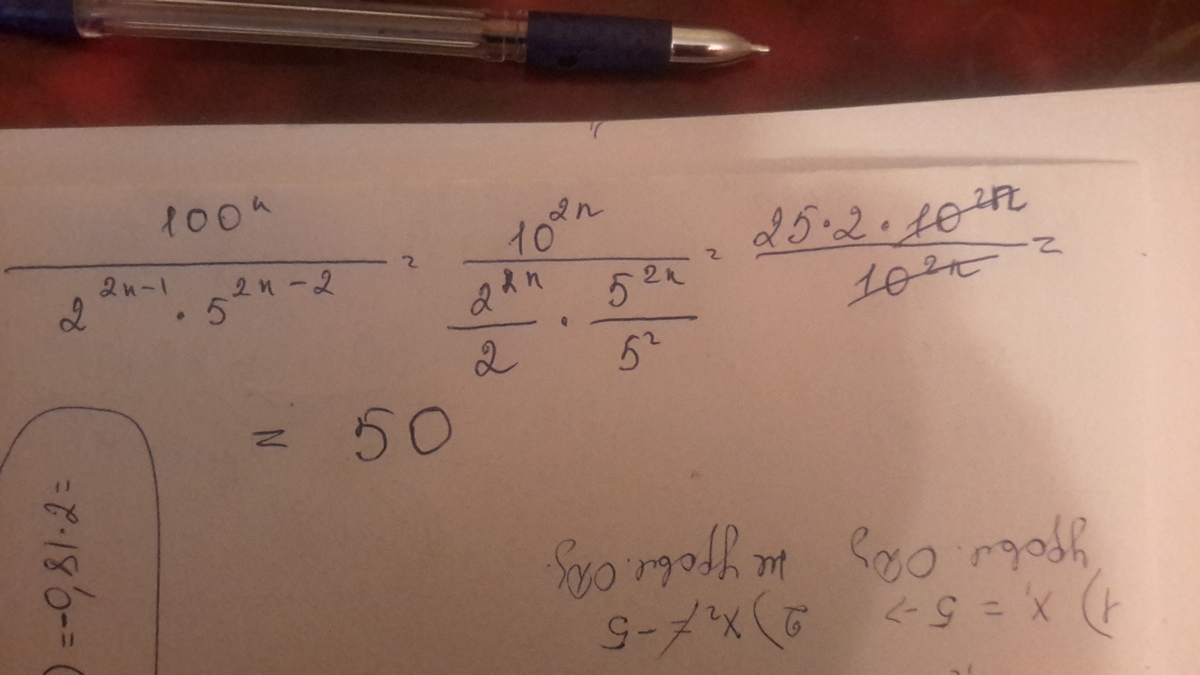 100ⁿ / (2²ⁿ⁻¹ · 5²ⁿ⁻²) = 10²ⁿ / (2²ⁿ/2 · 5²ⁿ/5²) = (25·2·10²ⁿ) / 10²ⁿ =
= 50
) = -0,81·2 =
1) x₁ = 5 -> 2) x₂ ≠ -5
удовл. ОДЗ не удовл. ОДЗ.